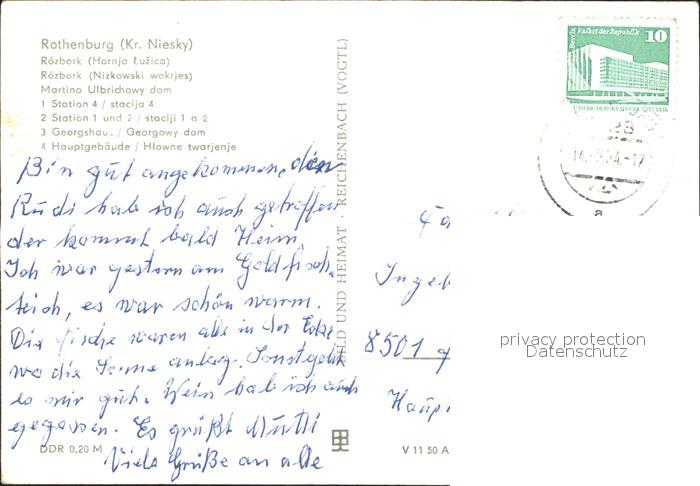 Rothenburg (Kr. Niesky)
Rózbork (Hornja Łužica)
Rózbork (Nizkowski wokrjes)
Martina Ulbrichowy dom
1 Station 4 / stacija 4
2 Station 1 und 2 / staciji 1 a 2
3 Georgshaus / Georgowy dom
4 Hauptgebäude / Hłowne twarjenje
Bin gut angekommen, den
Rudi hab ich auch getroffen
der kommt bald Heim.
Ich war gestern am Goldfisch-
teich, es war schön warm.
Die Fische waren alle in der Ecke
wo die Sonne anlag. Sonst geht
es mir gut. Wein hab ich auch
gegessen. Es grüßt Mutti
Viele Grüße an alle
DDR 0,20 M
BILD UND HEIMAT · REICHENBACH (VOGTL)
V 11 50 A
Berlin Palast der Republik
10
DEUTSCHE DEMOKRATISCHE REPUBLIK
a
Ingel
8501
Haup
privacy protection
Datenschutz